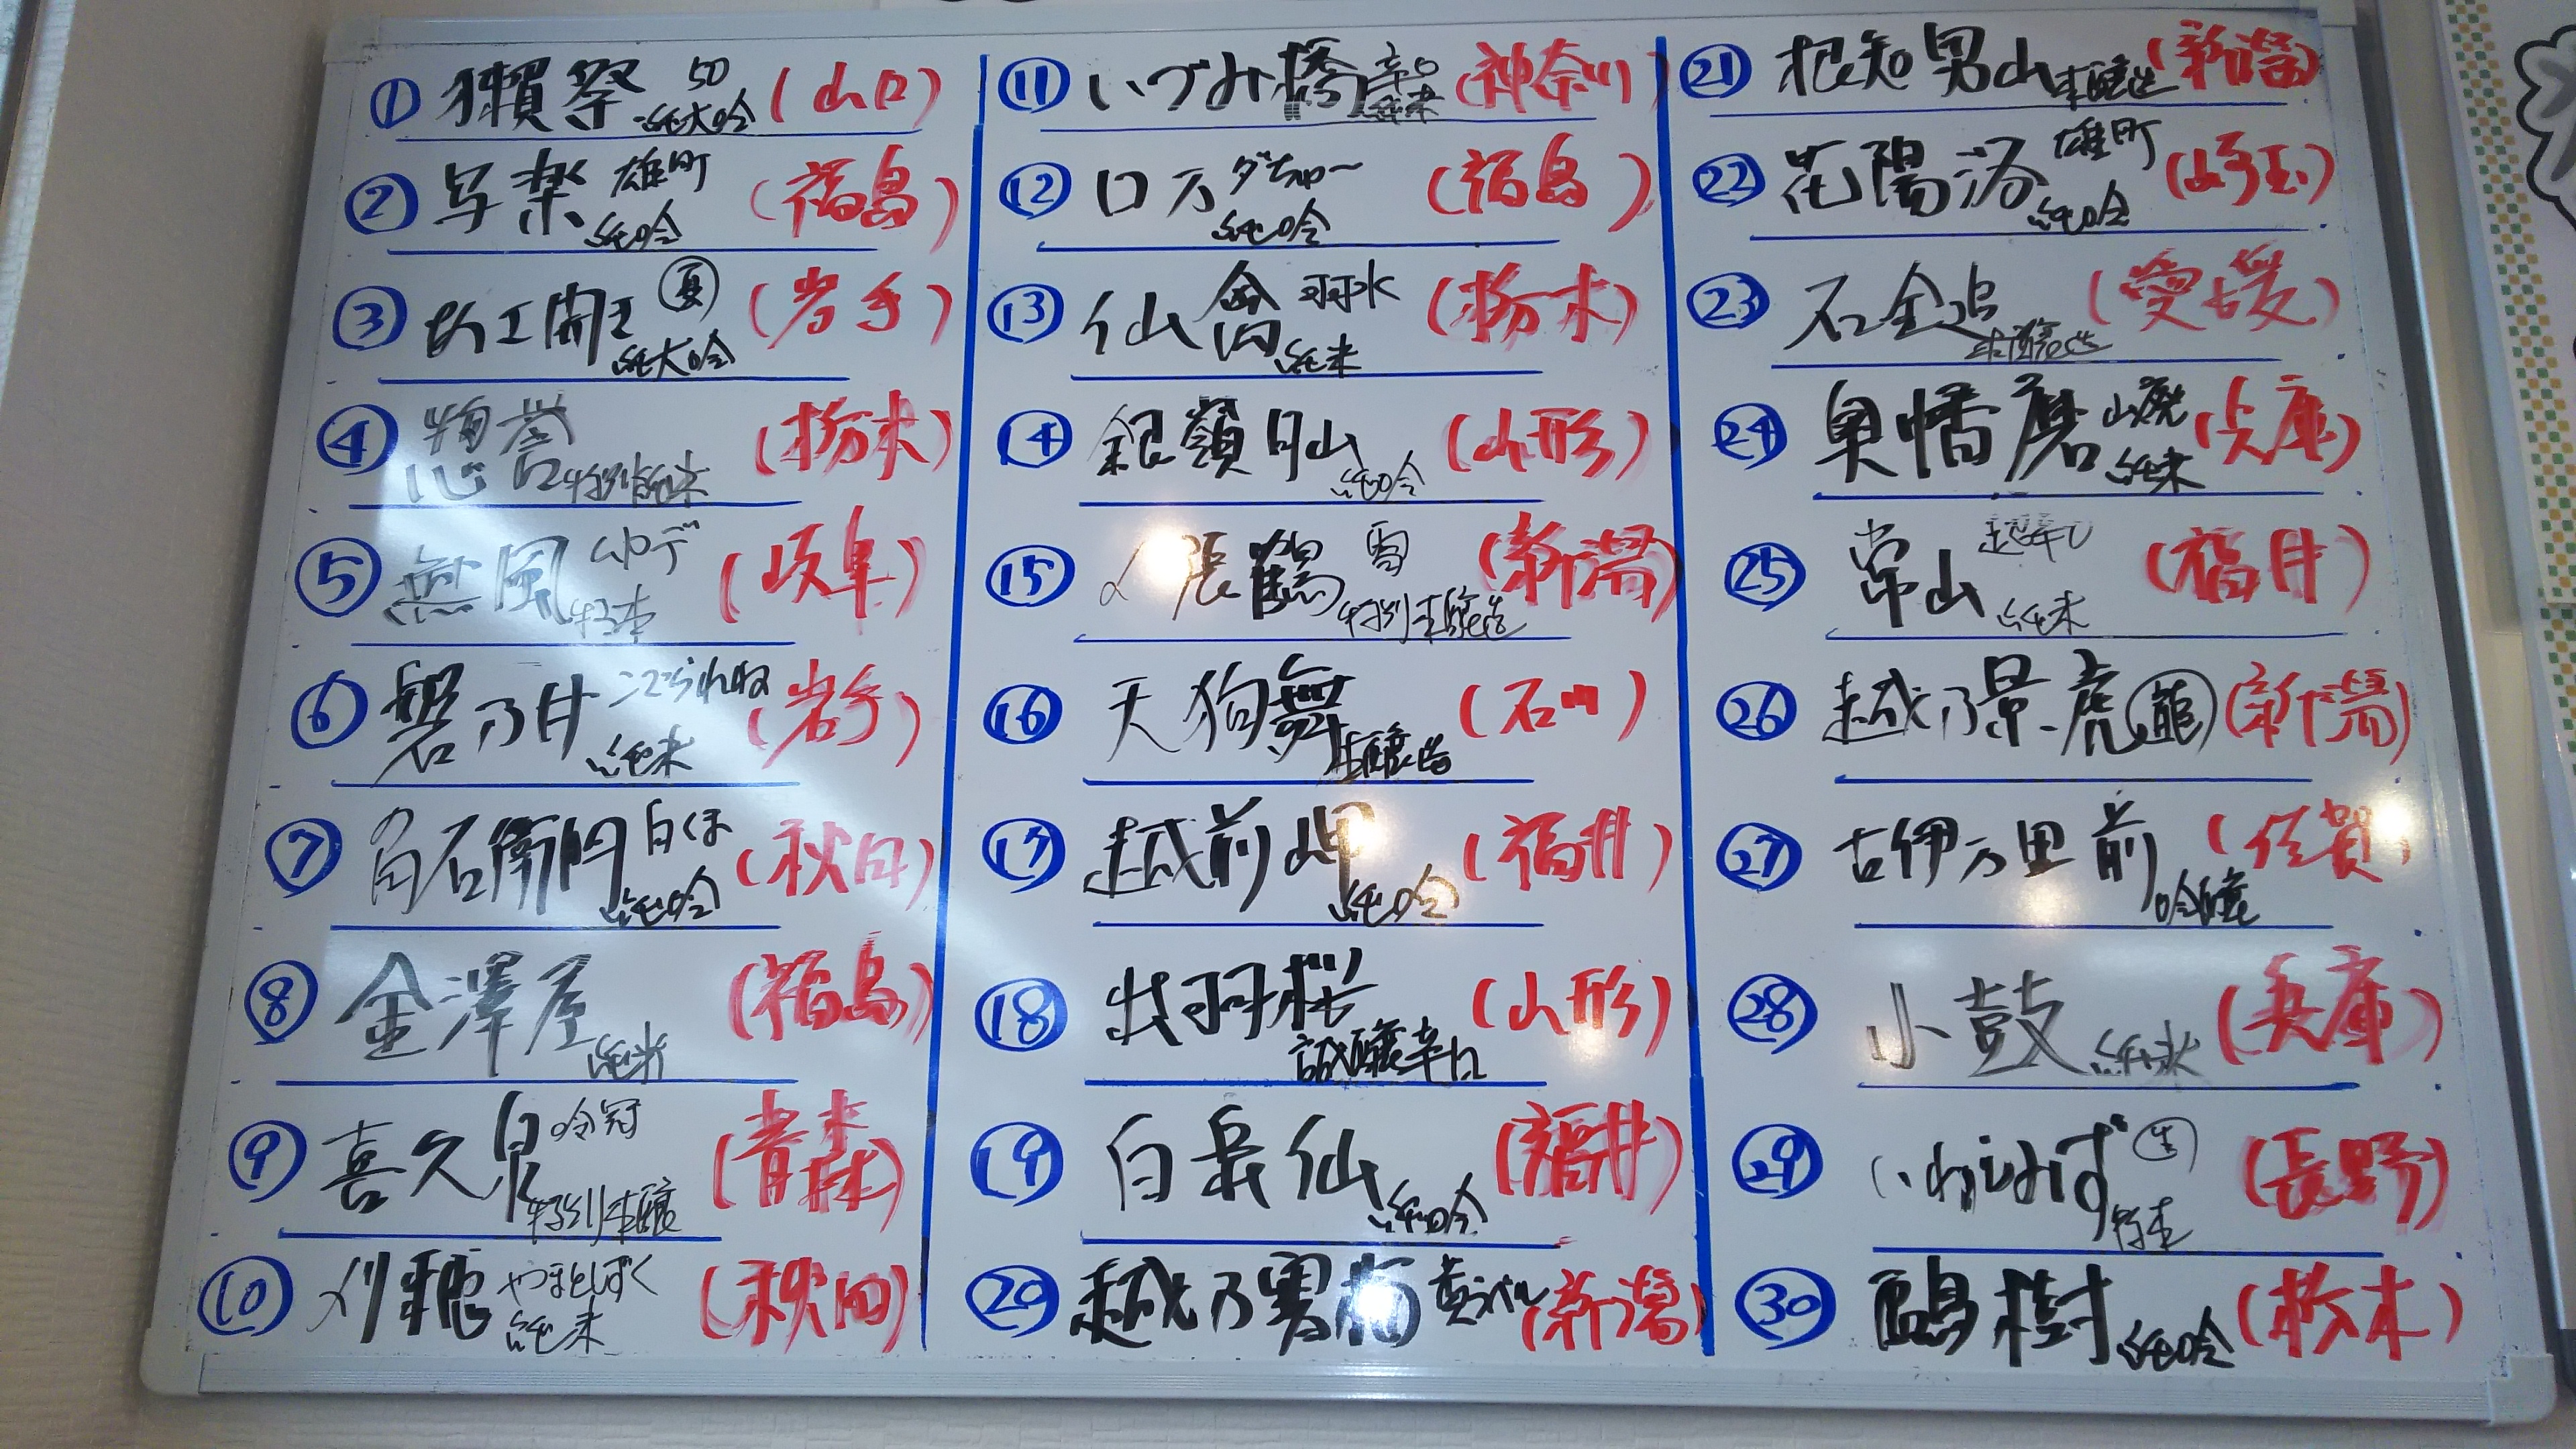 ① 獺祭 50 純大吟 (山口)
② 写楽 雄町 純吟 (福島)
③ 夏 純大吟 (岩手)
④ 惣誉 特別純米 (栃木)
⑤ 無風 (岐阜)
⑥ 磐乃井 こでらんねぇ 純米 (岩手)
⑦ 角右衛門 白くま 純吟 (秋田)
⑧ 金澤屋 純米 (福島)
⑨ 喜久泉 吟冠 特別本醸 (青森)
⑩ 刈穂 やまとしずく 純米 (秋田)
⑪ いづみ橋 辛口 純米 (神奈川)
⑫ ロ万 だぢゅー 純吟 (福島)
⑬ 仙禽 純米 (栃木)
⑭ 銀嶺月山 純吟 (山形)
⑮ 〆張鶴 雪 特別本醸造 (新潟)
⑯ 天狗舞 本醸造 (石川)
⑰ 越前岬 純吟 (福井)
⑱ 出羽桜 誠醸辛口 (山形)
⑲ 白岳仙 純吟 (福井)
⑳ 越乃寒菊 (新潟)
㉑ 根知男山 本醸造 (新潟)
㉒ 花陽浴 雄町 純吟 (埼玉)
㉓ 石鎚 本醸造 (愛媛)
㉔ 奥播磨 山廃 純米 (兵庫)
㉕ 常山 超辛口 純米 (福井)
㉖ 越乃景虎 龍 (新潟)
㉗ 古伊万里 前 吟醸 (佐賀)
㉘ 小鼓 純米 (兵庫)
㉙ いわしみず 生 (長野)
㉚ 鷗樹 純吟 (栃木)